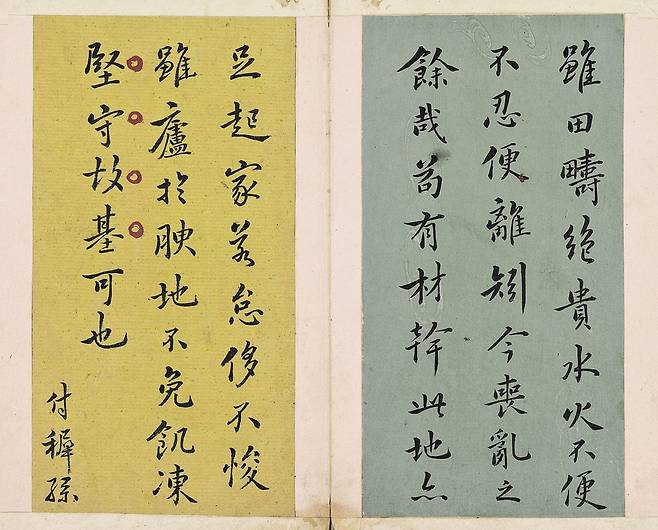 雖田疇絶貴水火不便
不忍便離矧今喪亂之
餘哉苟有材幹此地亦
足起家若怠侈不悛
雖廬於腴地不免飢凍
堅守故基可也
付穉孫